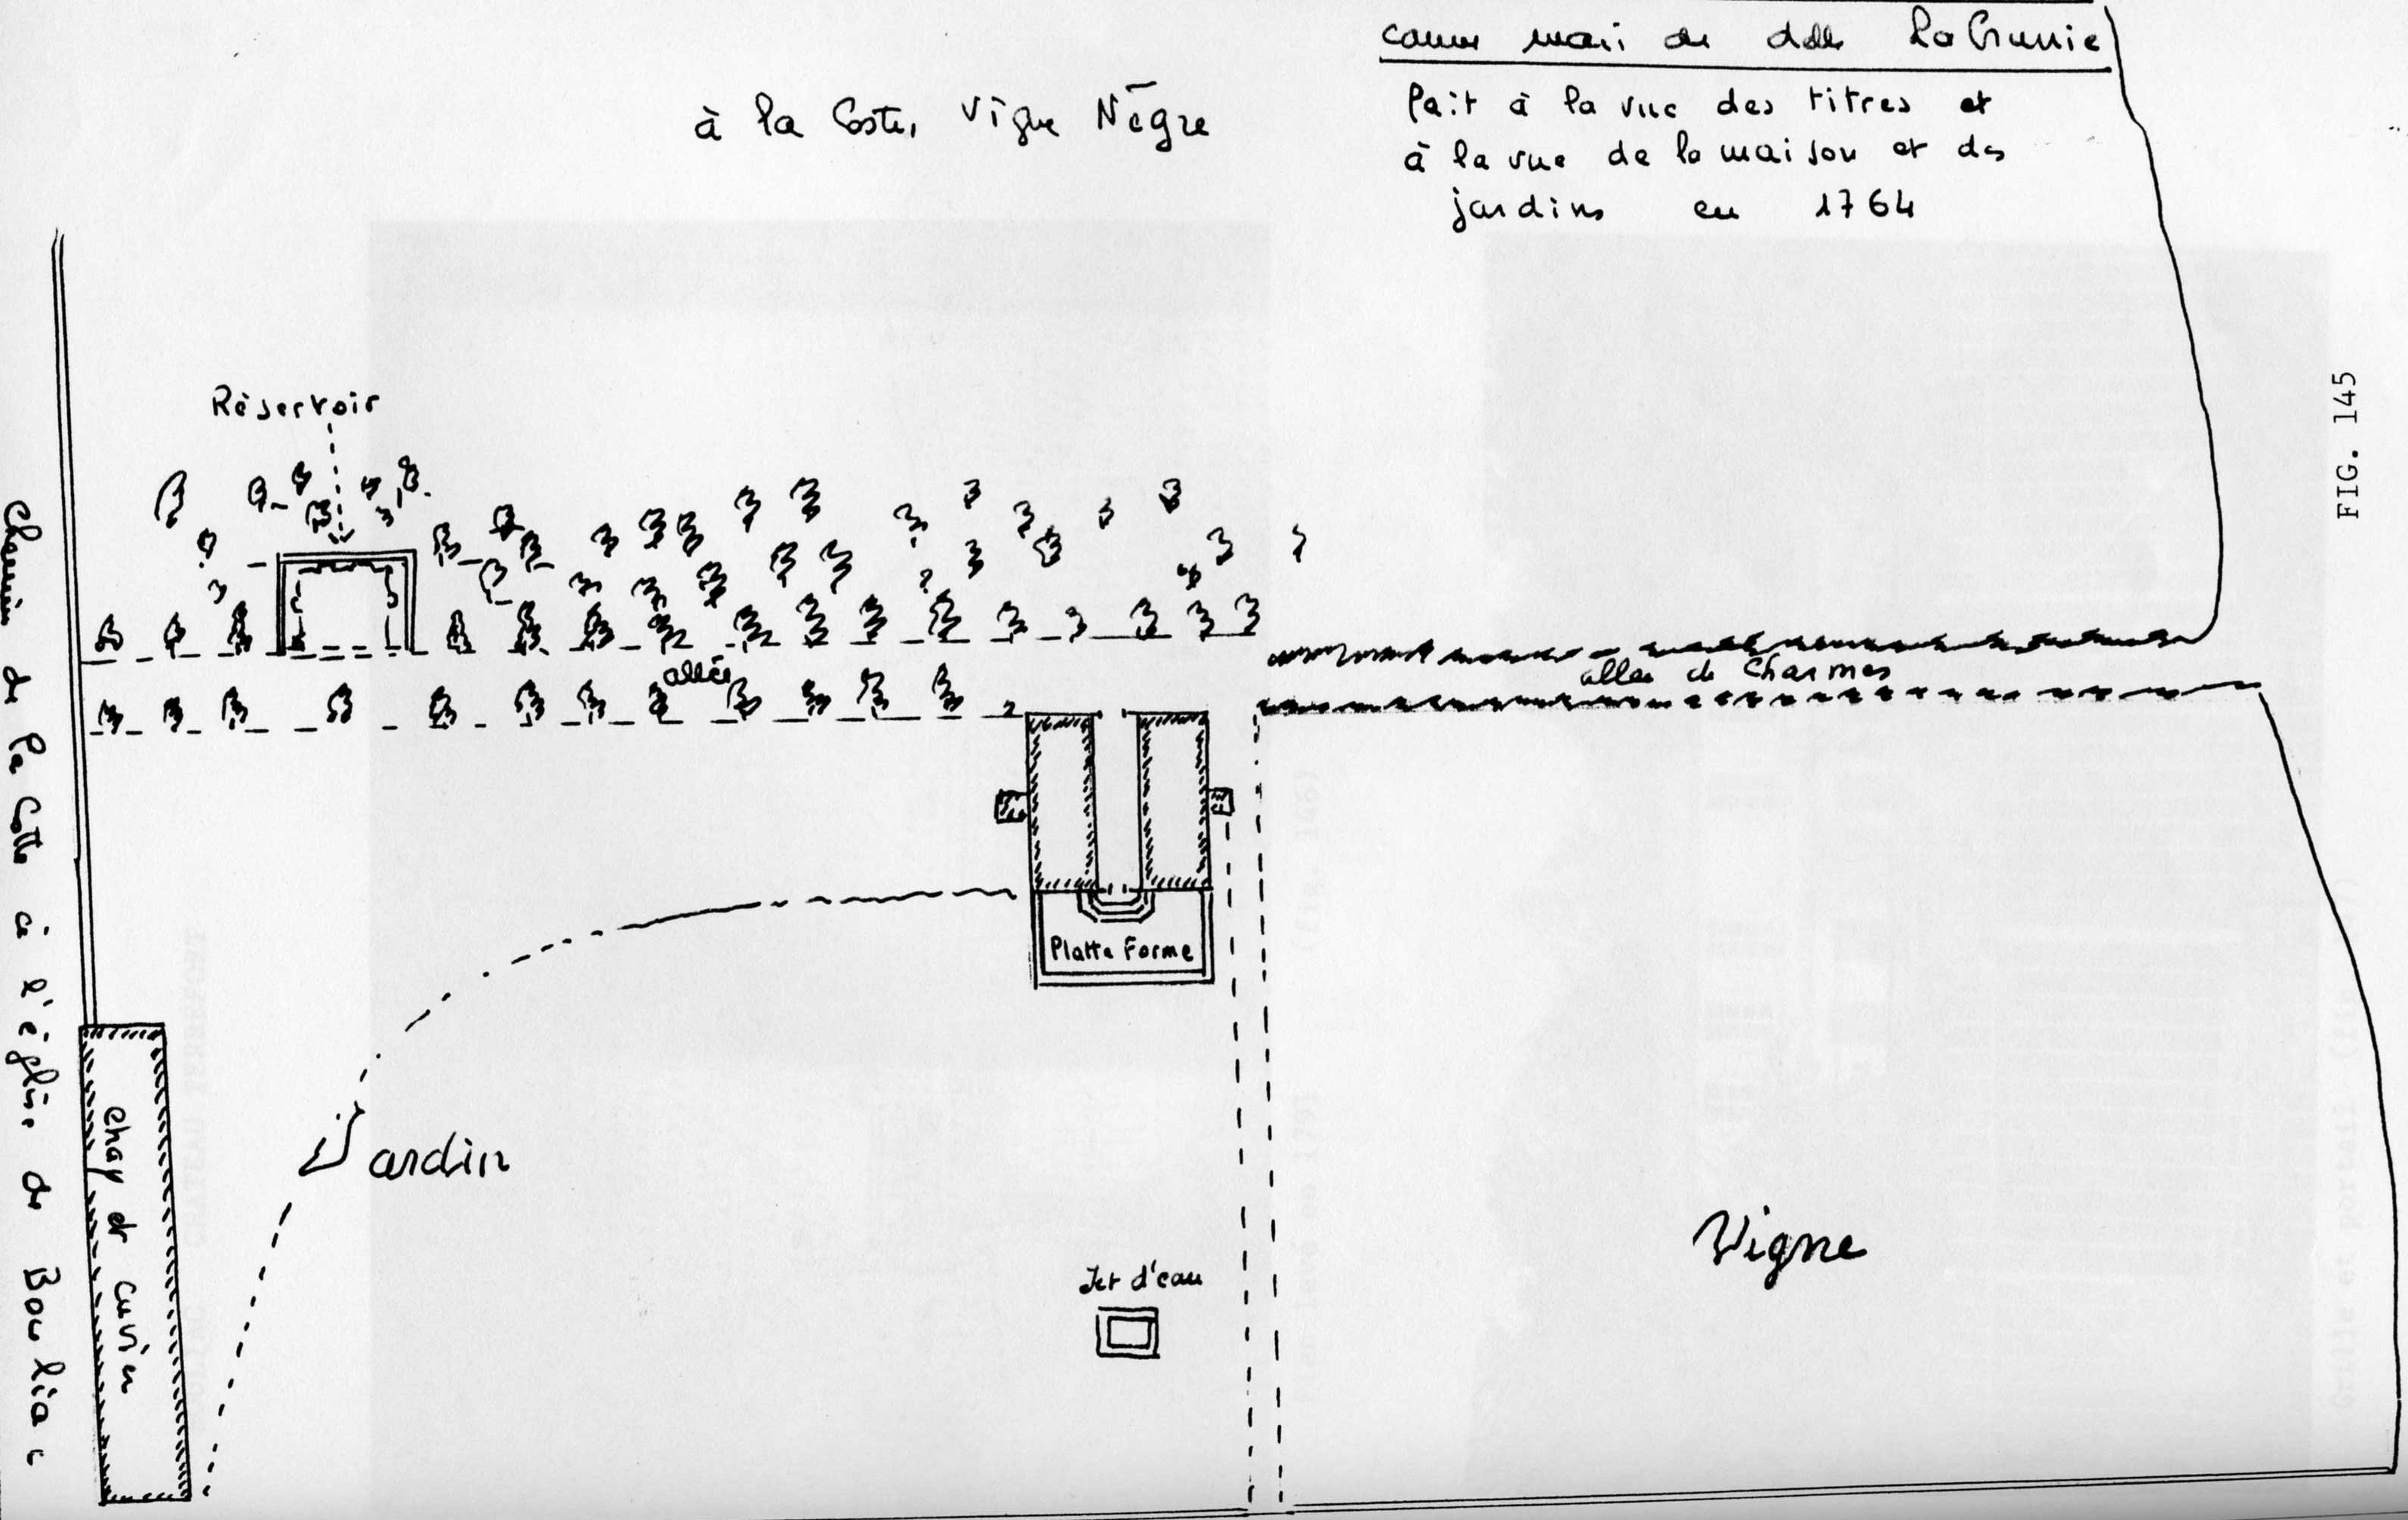 comme mari de dlle LaGrunie
à la Coste, Vigne Nègre
fait à la vue des titres et
à la vue de la maison et des
jardins en 1764
FIG. 145
Réservoir
allée
allée de Charmes
Chemin de la Cotte à l'église de Bouliac
Platte Forme
chay et cuvier
Jardin
Jet d'eau
Vigne